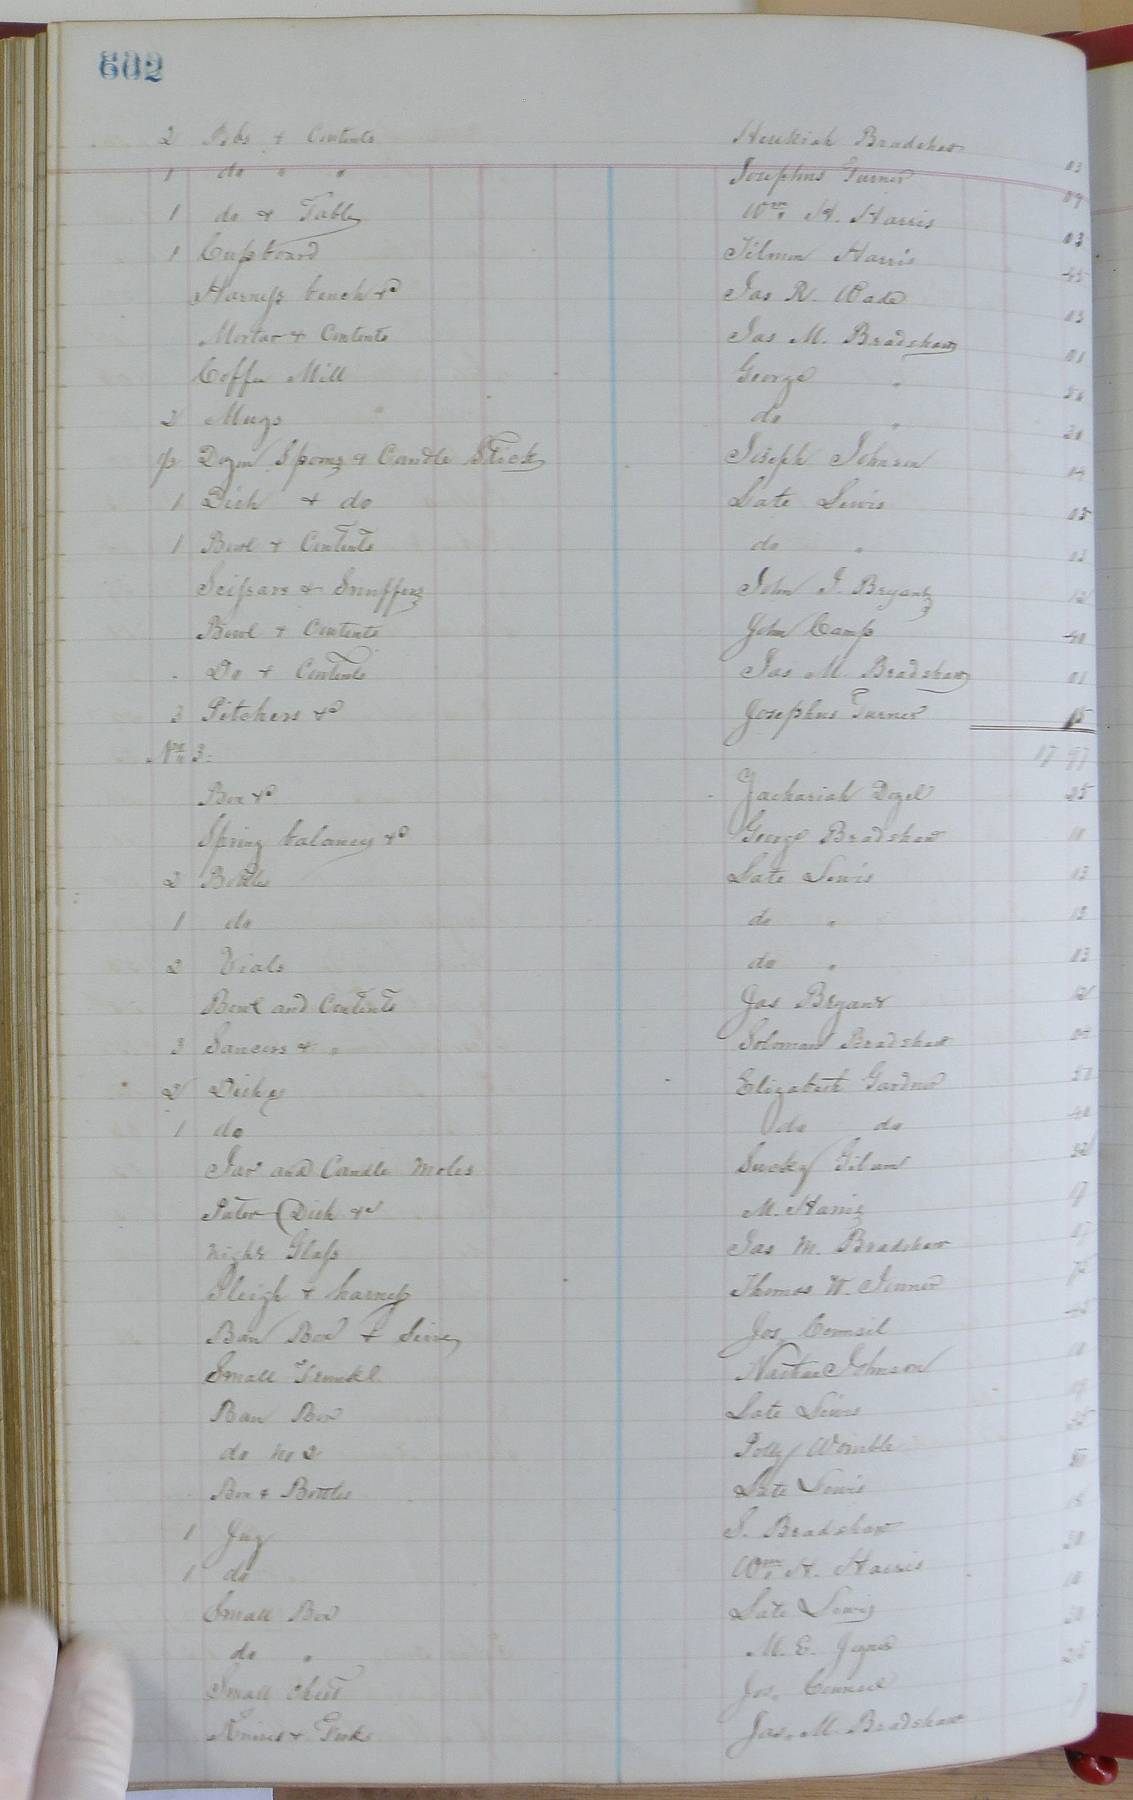 602
2 Bbs & Contents Hezekiah Bradshaw 03
1 do " " Josephus Turner 09
1 do & Table Wm H. Harris 03
1 Cupboard Tilmon Harris 45
Harness bench &c Jas R. Wade 03
Mortar & Contents Jas M. Bradshaw 01
Coffee Mill George " 50
2 Mugs do " 20
Dozen Spoons & Candle Stick Joseph Johnson 04
1 Dish & do Late Lewis 05
1 Bowl & Contents do "
Scissars & Snuffers John J. Bryant 12
Bowl & Contents John Camp 40
Do & Contents Jas M. Bradshaw 01
3 Pitchers &c Josephus Turner 15
No 3: 17 97
Box &c Zachariah Dozel 25
Spring balances &c George Bradshaw 10
2 Bottles Late Lewis 03
1 do do " 13
2 Vials do " 03
Bowl and Contents Jas Bryant 12
3 Saucers & " Soloman Bradshaw
2 Dishes Elizabeth Gardner 50
1 do do do 40
Jar and Candle Moles Sucky
Dish &c M. Harris
Night Glass Jas M. Bradshaw
Sleigh & harness Thomas W. Joiner
Ban Box & Seive Jos. Council
Small Trunkl Nathan Johnson
Ban Box Late Lewis
do No 2 Polly Womble
Box & Bottles Late Lewis
1 Jug S. Bradshaw
1 do Wm H. Harris
Small Box Late Lewis
do " M. E.
Small Chest Jos. Council
Knives & Forks Jas. M. Bradshaw